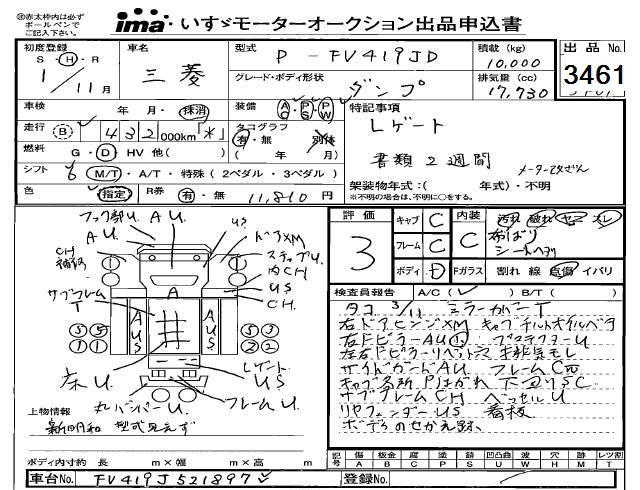 ※赤太枠内は必ず
ボールペンで
ご記入下さい。
ima いすゞモーターオークション出品申込書
初度登録
S・H・R
1/11月
車名
三菱
型式 P-FV419JD
グレード・ボディ形状 ダンプ
積載(kg)
10,000
排気量(cc)
17,730
出品No.
3461
車検 年・月・抹消
装備 AC PS PW
特記事項
Lゲート
書類2週間
メーター改ざん
走行 B 432000km *
タコグラフ
有・無 別体
( 年 月)
燃料 G・D・HV 他( )
シフト 6 M/T・A/T・特殊(2ペダル・3ペダル)
色 指定 R券 有・無 11,810円
架装物年式:( 年式)・不明
※不明の場合は、不明に○をする。
評価
3
キャブ C
フレーム C
ボディ D
内装 C
汚れ 破れ コゲ スレ
布ばり
シートヘタリ
Fガラス 割れ 線 点傷 イバリ
検査員報告 A/C( ) B/T( )
タコ 3/11 ミラーカバーT
右ドアヒンジXM
右ドピラーAU
排気モレ
サイドガードAU フレームC
キャブ各所 下回りSC
サブフレームCH ベッセルU
リヤフェンダーUS 看板
フック部U AU
AU
US
CH
ドアXM
ステップU
内CH
US
CH
サブフレーム
T
A
AUS
AUS
床U
Lゲート
US
フレームU
バンパーU
上物情報
新明和 型式見えず
ボディ内寸約 長 m×幅 m×高 m
車台No. FV419J521897
記号
傷 板金 腐 塗 錆 凹凸曲 凹 W 穴 跡 補
A B C P S U W H M T
登録No.